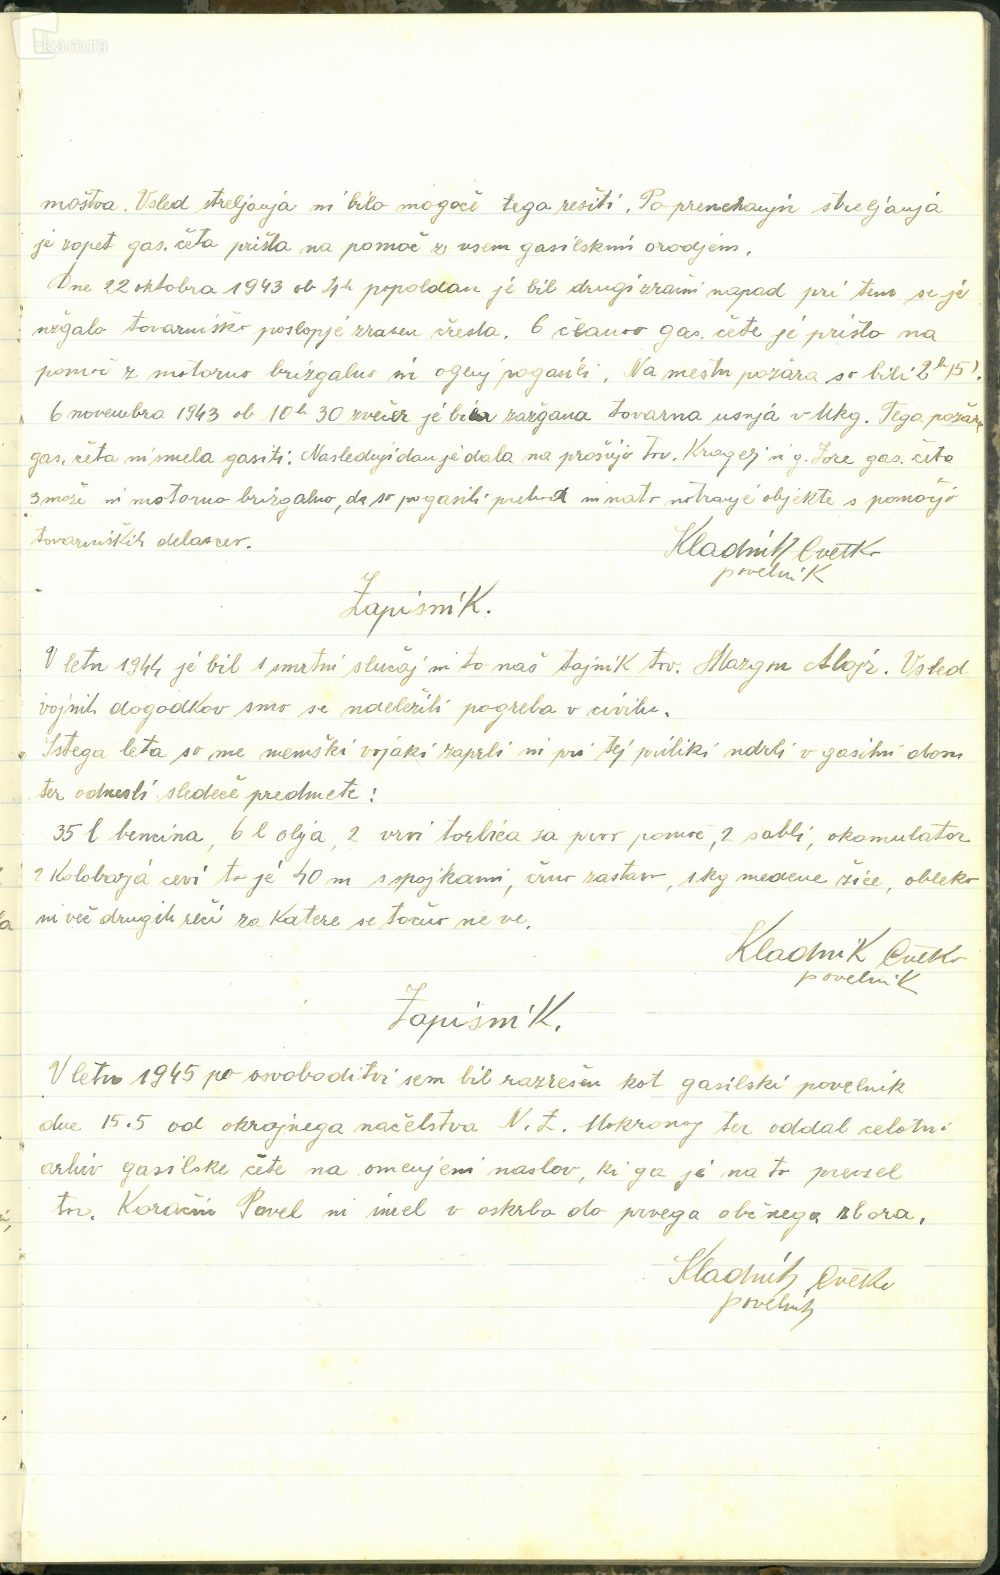 kamra
moštva. Vsled streljanja ni bilo mogoče tega rešiti. Po prenehanju streljanja
je zopet gas. četa prišla na pomoč z vsem gasilskim orodjem.
Dne 22 oktobra 1943 ob 4h popoldan je bil drugi zračni napad pri tem se je
užgalo tovarniško poslopje zraven čresla. 6 članov gas. čete je prišlo na
pomoč z motorno brizgalno in ogenj pogasili. Na mestu požara so bili 2h 15'.
6 novembra 1943 ob 10h 30 zvečer je bila zažgana tovarna usnja v Mkg. Tega požara
gas. četa ni smela gasiti. Naslednji dan je dala na prošnjo tov. Kragelj in g. Zore gas. četa
3 može in motorno brizgalno, da so pogasili prehod in nato notranje objekte s pomočjo
tovarniških delavcev.
Kladnik Cvetko
poveljnik
Zapisnik.
V letu 1944 je bil 1 smrtni slučaj in to naš tajnik tov. Mazgon Alojz. Vsled
vojnih dogodkov smo se udeležili pogreba v civilu.
Istega leta so me nemški vojaki zaprli in pri tej priliki udrli v gasilni dom
ter odnesli sledeče predmete:
35 l bencina, 6 l olja, 2 vrvi torbica za prvo pomoč, 2 sabli, akomulator
2 kolobarja cevi to je 40 m s spojkami, črno zastavo, 1 kg medene žice, obleko
in več drugih reči za katere se točno ne ve.
Kladnik Cvetko
povelnik
Zapisnik.
V letu 1945 po osvoboditvi sem bil razrešen kot gasilski povelnik
dne 15.5 od okrajnega načelstva N. Z. Mokronog ter oddal celotni
arhiv gasilske čete na omenjeni naslov, ki ga je na to prevzel
tov. Koračin Pavel in imel v oskrbo do prvega občnega zbora.
Kladnik Cvetko
povelnik